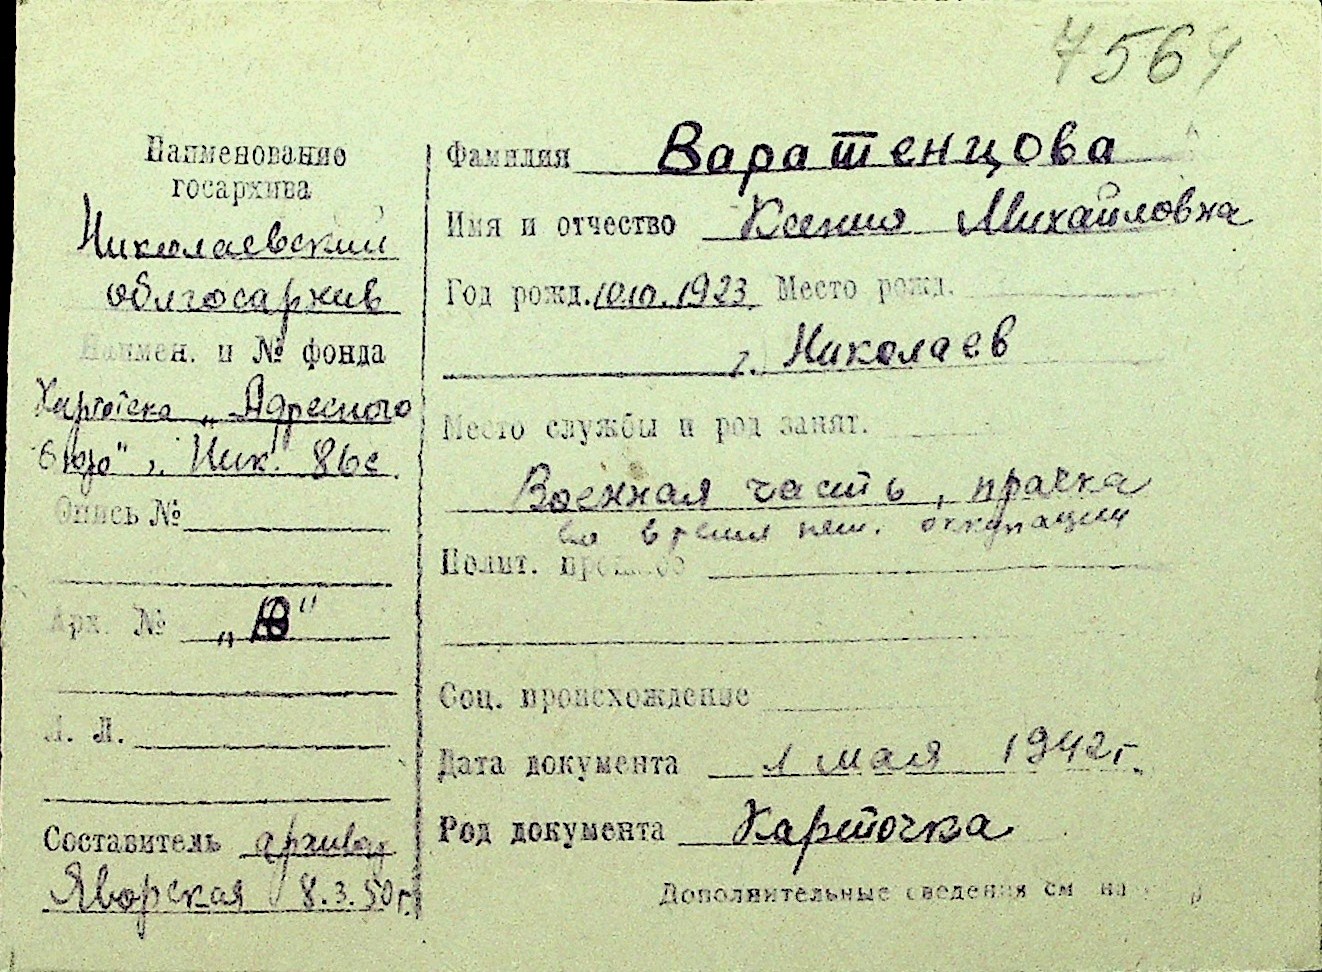 7564
Наименование
госархива
Николаевский
облгосархив
Наимен. и № фонда
Картотека „Адресного
бюро", Ник.
Опись №
Арх. № „В"
Л. Л.
Составитель архивов
Яворская 8.3.50 г.
Фамилия Варатенцова
Имя и отчество Ксения Михайловна
Год рожд. 10.10.1923 Место рожд.
г. Николаев
Место службы и род занят.
Военная часть, прачка
во время нем. оккупации
Полит. прошлое
Соц. происхождение
Дата документа 1 мая 1942 г.
Род документа Карточка
Дополнительные сведения см на